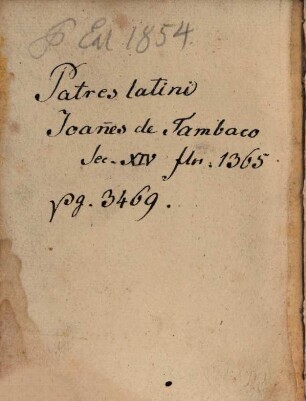 P Em 1854.
Patres latini
Joañes de Tambaco
Sec. XIV flor. 1365
pg. 3469.